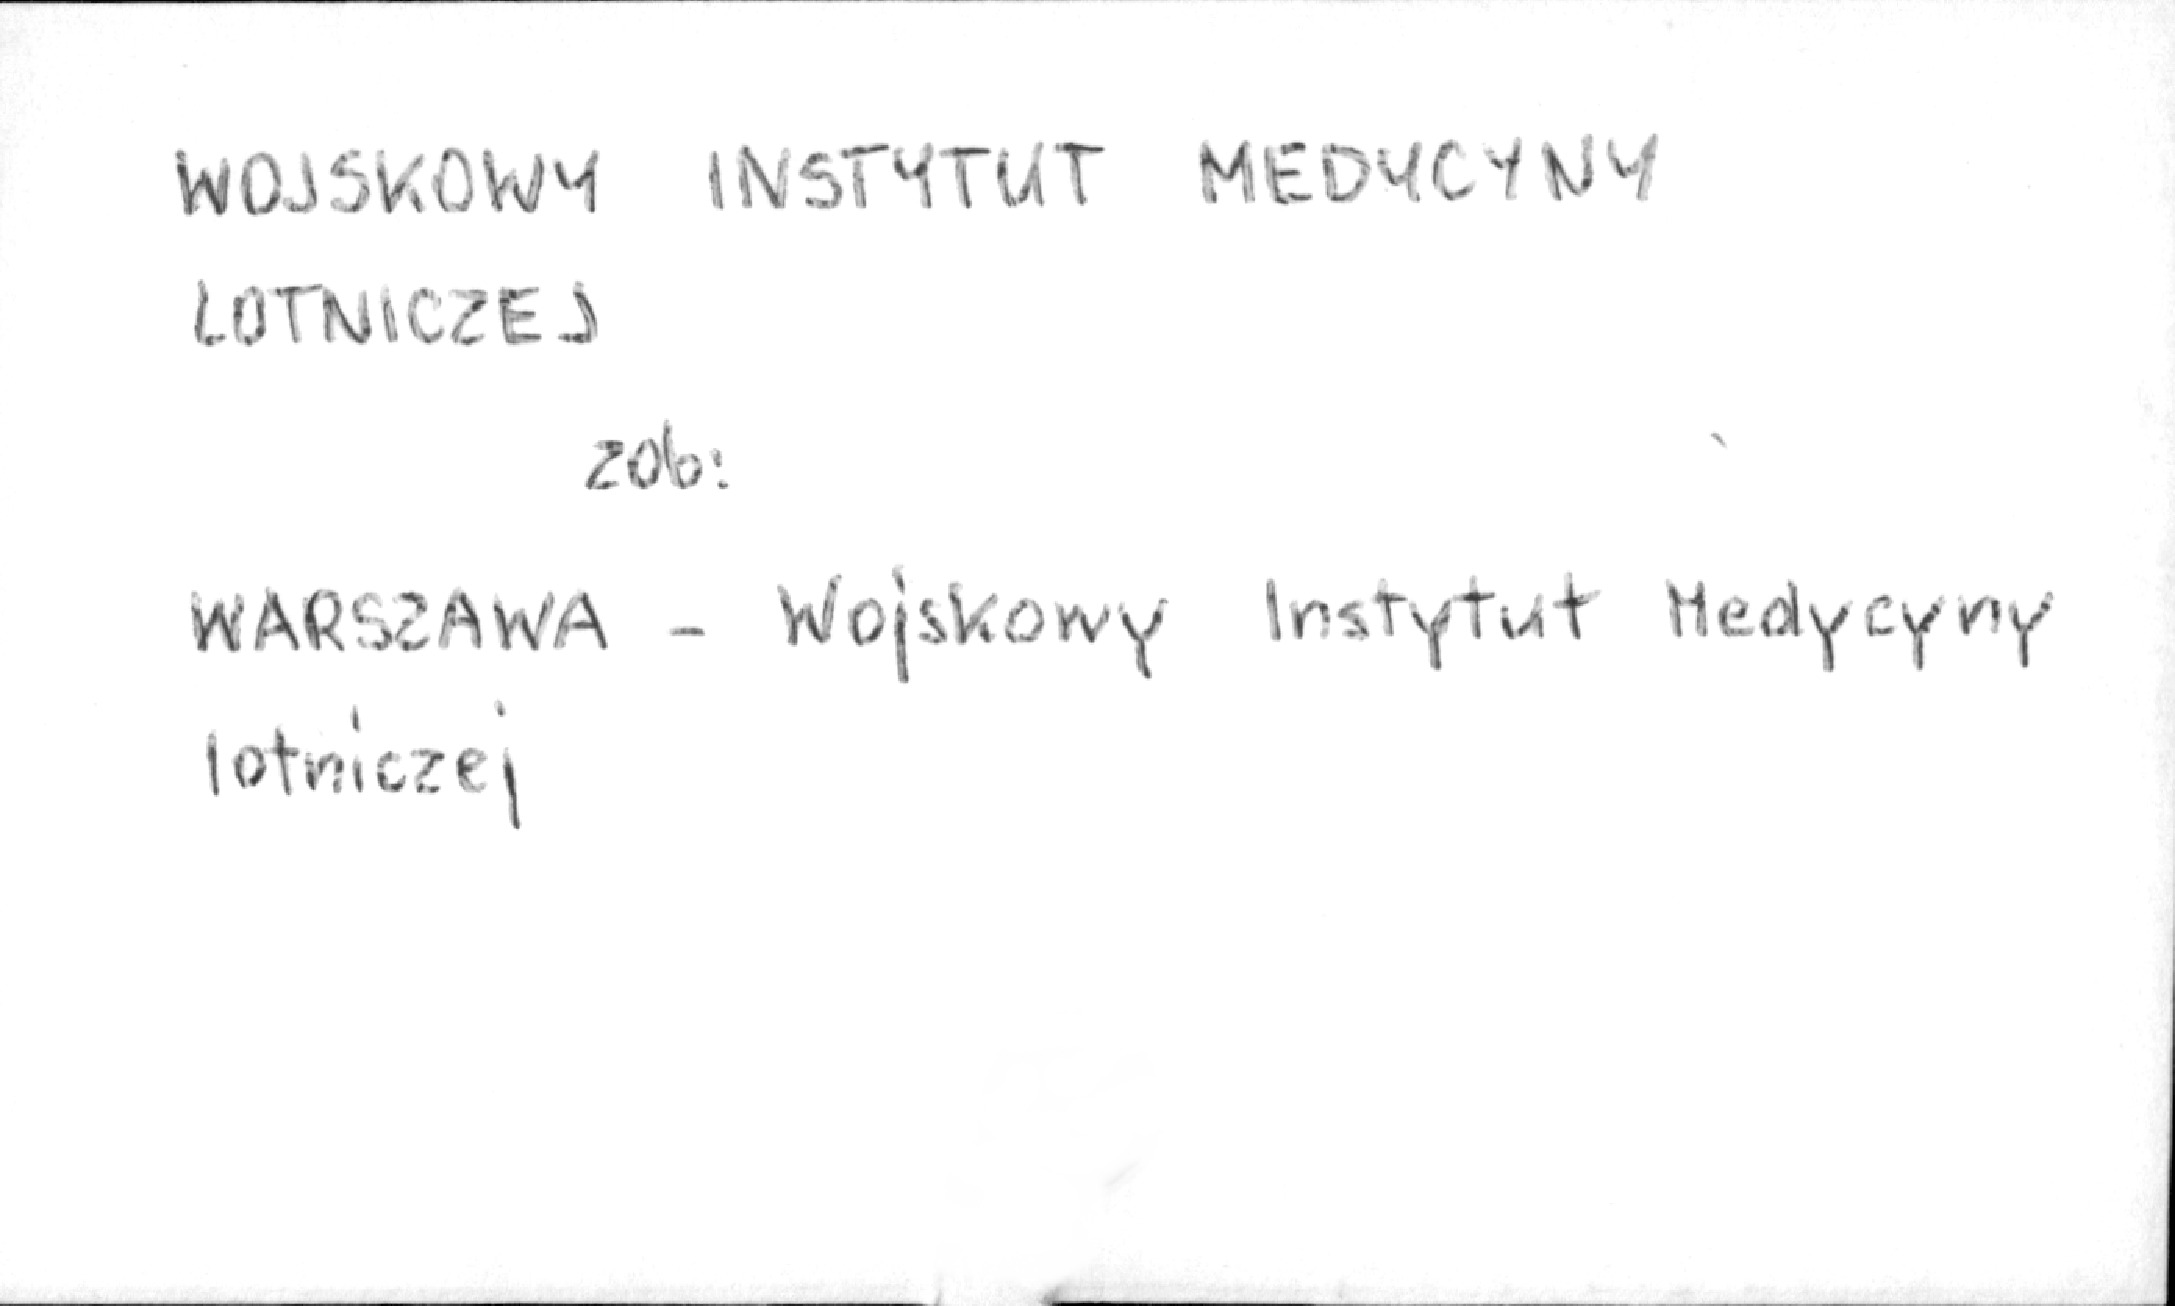 WOJSKOWY INSTYTUT MEDYCYNY
LOTNICZEJ
zob:
WARSZAWA - Wojskowy Instytut Medycyny
lotniczej